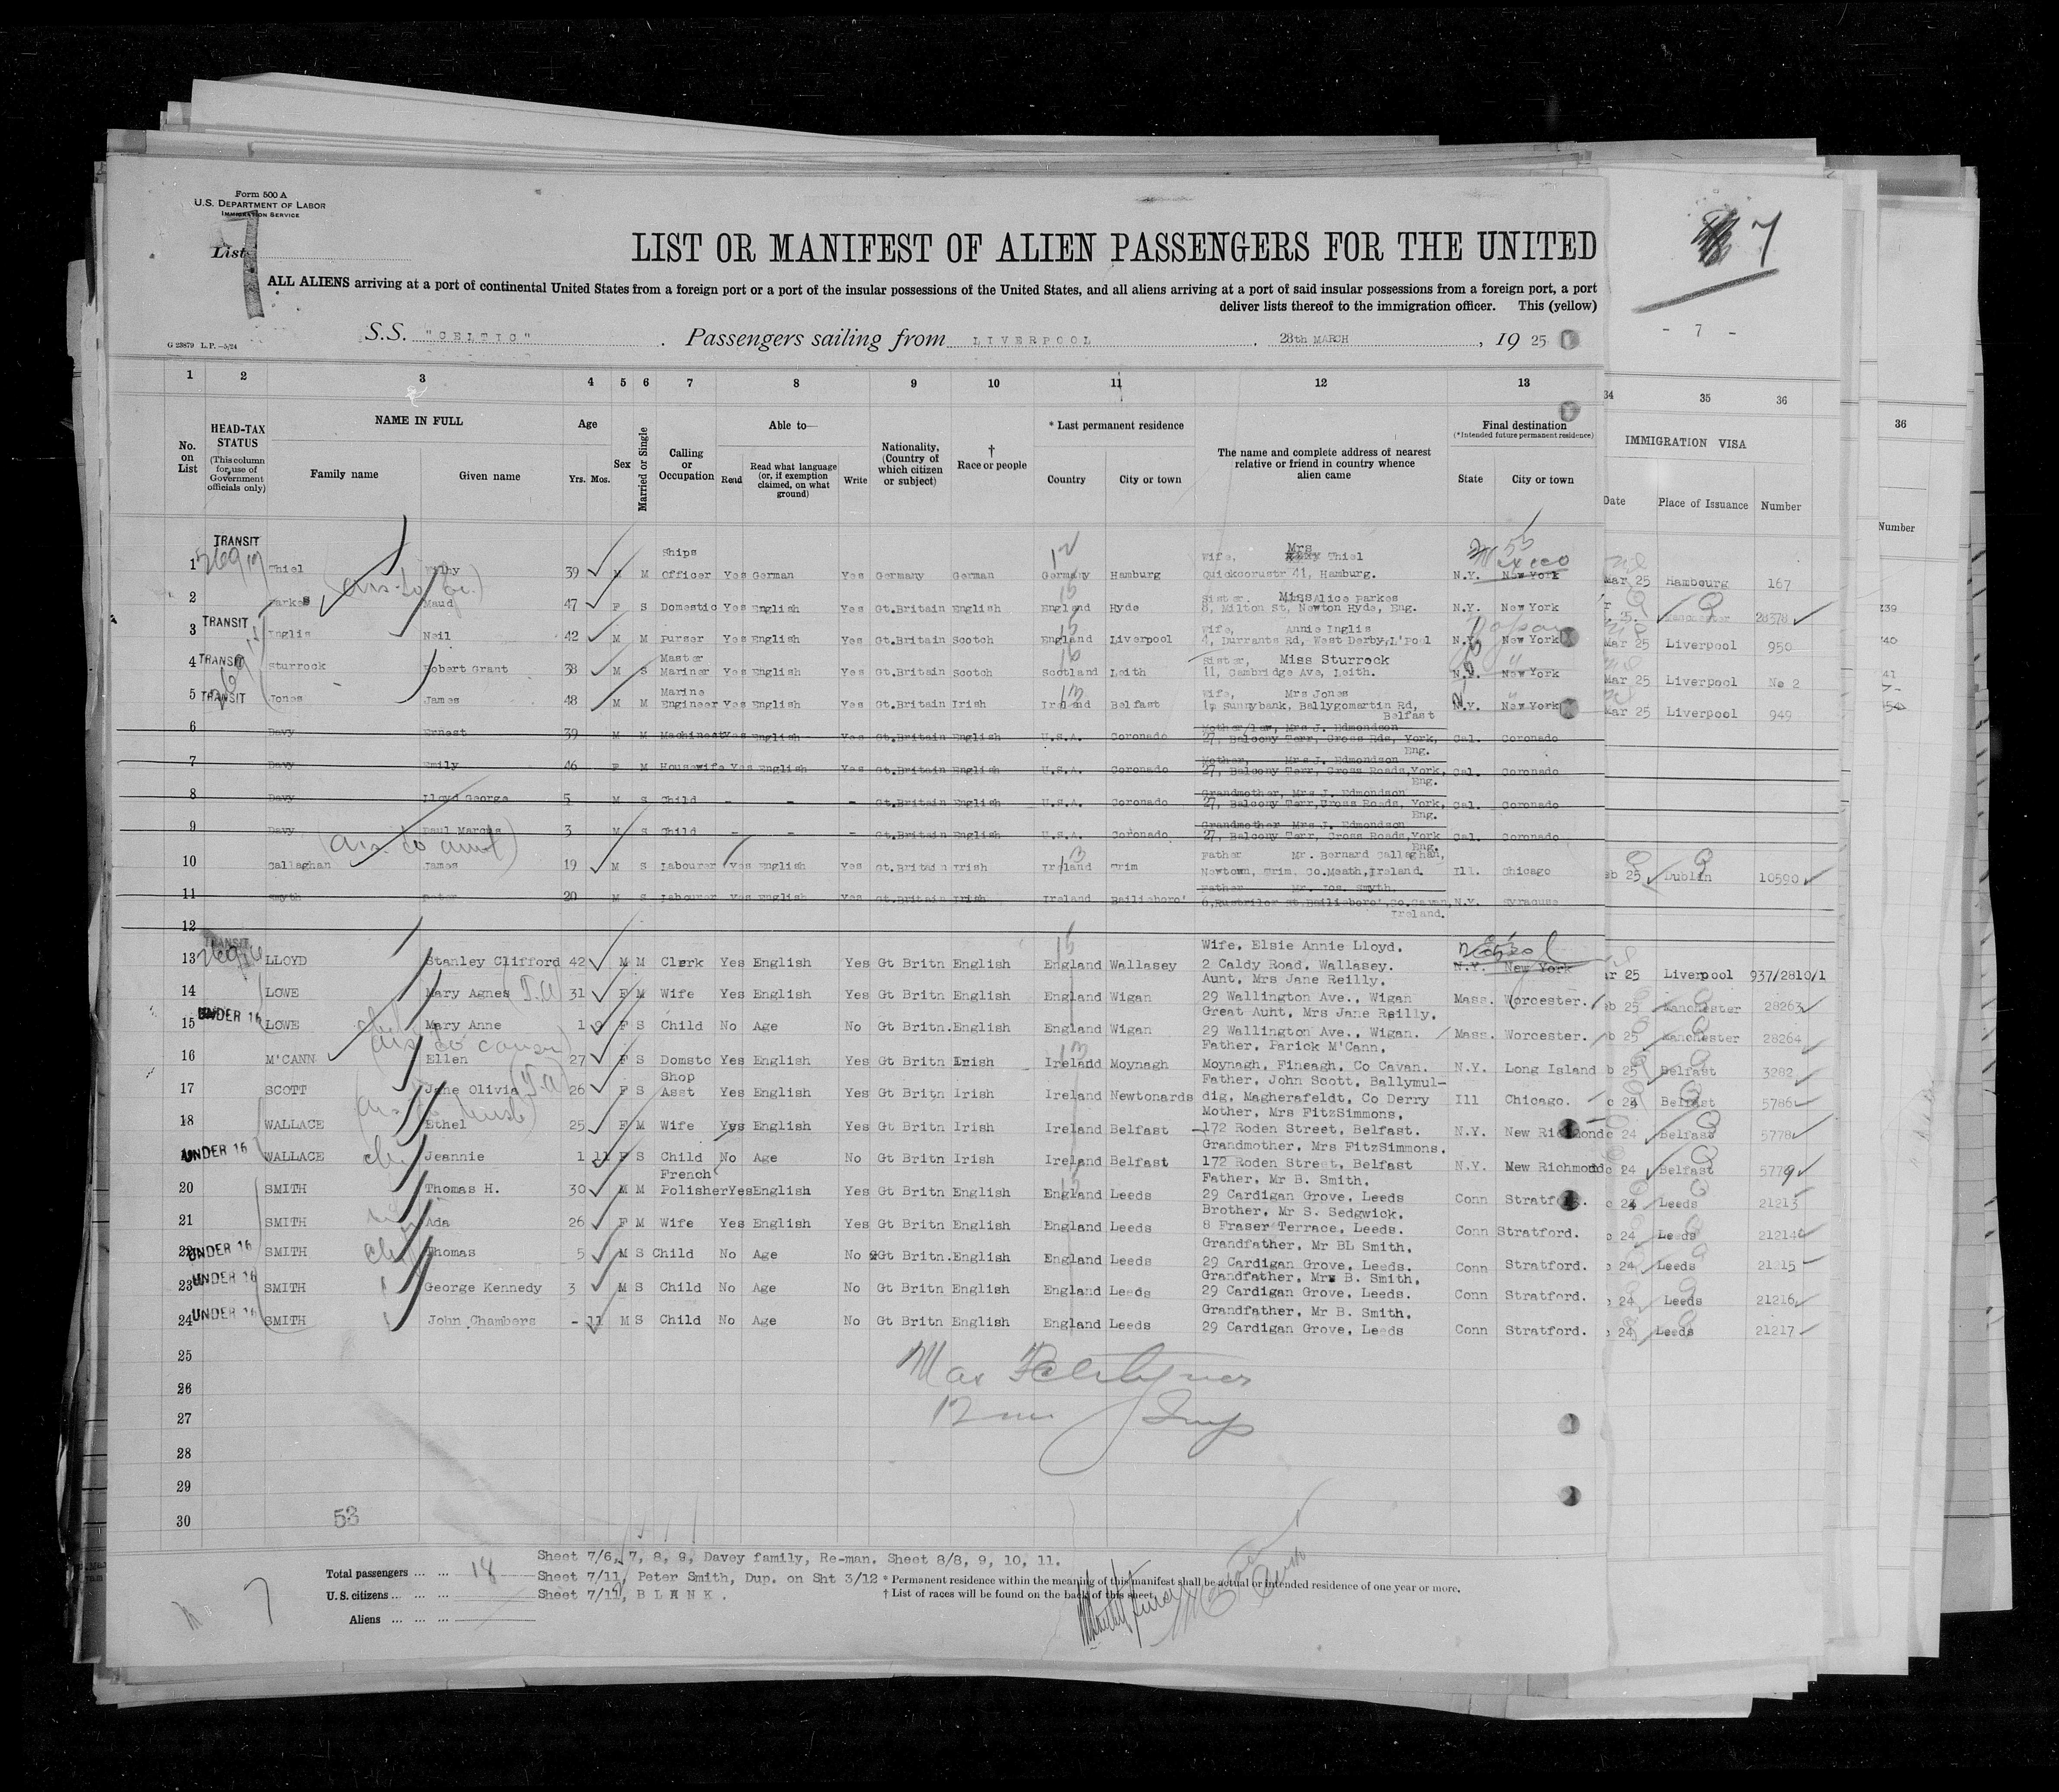 Form 500 A
U.S. DEPARTMENT OF LABOR
IMMIGRATION SERVICE
List 7
7
- 7 -
LIST OR MANIFEST OF ALIEN PASSENGERS FOR THE UNITED
ALL ALIENS arriving at a port of continental United States from a foreign port or a port of the insular possessions of the United States, and all aliens arriving at a port of said insular possessions from a foreign port, a port
deliver lists thereof to the immigration officer. This (yellow)
G 23879 L.P.—5/24
S.S. "CELTIC" . Passengers sailing from LIVERPOOL . 28th MARCH , 19 25
1 2 3 4 5 6 7 8 9 10 11 12 13 34 35 36
36
No. on List
HEAD-TAX STATUS (This column for use of Government officials only)
NAME IN FULL
Family name Given name
Age Yrs. Mos.
Sex
Married or Single
Calling or Occupation
Able to—
Read Read what language (or, if exemption claimed, on what ground) Write
Nationality, (Country of which citizen or subject)
† Race or people
* Last permanent residence
Country City or town
The name and complete address of nearest relative or friend in country whence alien came
Final destination
(*Intended future permanent residence)
State City or town
IMMIGRATION VISA
Date Place of Issuance Number
Number
TRANSIT Ships Wife, Mrs Thiel Mexico
1 Thiel 39 M M Officer Yes German Yes Germany German Germany Hamburg Quickcorustr 41, Hamburg. N.Y. New York Mar 25 Hambourg 167
Sister. Miss Alice Parkes
2 Parkes Maud 47 F S Domestic Yes English Yes Gt.Britain English England Hyde 8, Milton St, Newton Hyde, Eng. N.Y. New York 25. Manchester 28378
TRANSIT Wife, Annie Inglis Japan
3 Inglis Neil 42 M M Purser Yes English Yes Gt.Britain Scotch England Liverpool 4, Durrants Rd, West Derby, L'Pool N.Y. New York Mar 25 Liverpool 950
TRANSIT Master Sister, Miss Sturrock "
4 Sturrock Robert Grant 38 M S Mariner Yes English Yes Gt.Britain Scotch Scotland Leith 11, Cambridge Ave, Leith. N.Y. New York Mar 25 Liverpool No 2
TRANSIT Marine Wife, Mrs Jones "
5 Jones James 48 M M Engineer Yes English Yes Gt.Britain Irish Ireland Belfast 1, Sunnybank, Ballygomartin Rd, N.Y. New York Mar 25 Liverpool 949
Belfast
Mother/law, Mrs J. Edmondson
6 Davy Ernest 39 M M Machinest Yes English Yes Gt.Britain English U.S.A. Coronado 27, Balcony Terr, Cross Rds, York, Cal. Coronado
Eng.
Mother, Mrs J. Edmondson
7 Davy Emily 46 F M Housewife Yes English Yes Gt.Britain English U.S.A. Coronado 27, Balcony Terr, Cross Roads, York, Cal. Coronado
Eng.
Grandmother, Mrs J. Edmondson
8 Davy Lloyd George 5 M S Child - - - Gt.Britain English U.S.A. Coronado 27, Balcony Terr, Cross Roads, York, Cal. Coronado
Eng.
Grandmother Mrs J. Edmondson
9 Davy Paul Marcus 3 M S Child - - - Gt.Britain English U.S.A. Coronado 27, Balcony Terr, Cross Roads, York Cal. Coronado
Eng.
Father Mr. Bernard Callaghan,
10 Callaghan James 19 M S Labourer Yes English Yes Gt.Britain Irish Ireland Trim Newtown, Trim, Co.Meath, Ireland. Ill. Chicago eb 25 Dublin 10590
Father Mr. Jos. Smyth
11 Smyth Peter 20 M S Labourer Yes English Yes Gt.Britain Irish Ireland Bailieboro' St, Bailieboro', Co.Cavan, N.Y. Syracuse
Ireland.
12
TRANSIT Wife, Elsie Annie Lloyd.
13 LLOYD Stanley Clifford 42 M M Clerk Yes English Yes Gt Britn English England Wallasey 2 Caldy Road, Wallasey. N.Y. New York ar 25 Liverpool 937/2810/1
Aunt, Mrs Jane Reilly.
14 LOWE Mary Agnes 31 F M Wife Yes English Yes Gt Britn English England Wigan 29 Wallington Ave., Wigan Mass. Worcester. b 25 Manchester 28263
UNDER 16 Great Aunt, Mrs Jane Reilly.
15 LOWE Mary Anne 1 9 F S Child No Age No Gt Britn.English England Wigan 29 Wallington Ave., Wigan. Mass. Worcester. b 25 Manchester 28264
Father, Parick M'Cann.
16 M'CANN Ellen 27 F S Domstc Yes English Yes Gt Britn Irish Ireland Moynagh Moynagh, Fineagh, Co Cavan. N.Y. Long Island b 25 Belfast 3282
Shop Father, John Scott, Ballymul-
17 SCOTT Jane Olivia 26 F S Asst Yes English Yes Gt Britn Irish Ireland Newtonards dig, Magherafeldt, Co Derry Ill Chicago. c 24 Belfast 5786
Mother, Mrs FitzSimmons.
18 WALLACE Ethel 25 F M Wife Yes English Yes Gt Britn Irish Ireland Belfast 172 Roden Street, Belfast. N.Y. New Richmond c 24 Belfast 5778
UNDER 16 Grandmother, Mrs FitzSimmons.
WALLACE Jeannie 1 11 F S Child No Age No Gt Britn Irish Ireland Belfast 172 Roden Street, Belfast N.Y. Mew Richmond c 24 Belfast 5779
French Father, Mr B. Smith.
20 SMITH Thomas H. 30 M M Polisher Yes English Yes Gt Britn English England Leeds 29 Cardigan Grove, Leeds Conn Stratford. c 24 Leeds 21213
Brother, Mr S. Sedgwick.
21 SMITH Ada 26 F M Wife Yes English Yes Gt Britn English England Leeds 8 Fraser Terrace, Leeds. Conn Stratford. c 24 Leeds 21214
Grandfather, Mr BL Smith.
22 UNDER 16 SMITH Thomas 5 M S Child No Age No Gt Britn.English England Leeds 29 Cardigan Grove, Leeds. Conn Stratford. c 24 Leeds 21215
Grandfather, Mrs B. Smith.
23 UNDER 16 SMITH George Kennedy 3 M S Child No Age No Gt Britn English England Leeds 29 Cardigan Grove, Leeds. Conn Stratford. 24 Leeds 21216
Grandfather, Mr B. Smith.
24 UNDER 16 SMITH John Chambers - 11 M S Child No Age No Gt Britn English England Leeds 29 Cardigan Grove, Leeds Conn Stratford. 24 Leeds 21217
25
26
27
28
29
30
53
Sheet 7/6, 7, 8, 9, Davey family, Re-man. Sheet 8/8, 9, 10, 11.
Total passengers ... ... 18
Sheet 7/11, Peter Smith, Dup. on Sht 3/12
* Permanent residence within the meaning of this manifest shall be actual or intended residence of one year or more.
U.S. citizens ... ... ...
Sheet 7/12, BLANK.
† List of races will be found on the back of this sheet.
Aliens ... ... ...
7